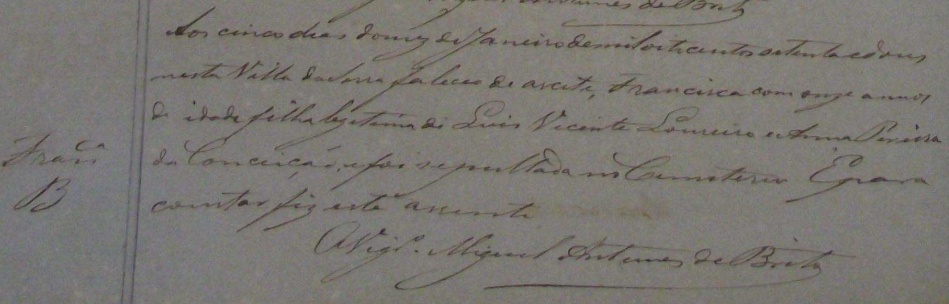 Antunes de Brito
Aos cinco dias do mez de Janeiro de mil oitocentos setenta e dous
nesta Villa da Serra faleceo de ascite, Francisca com onze annos
de idade filha legitima de Luis Vicente Loureiro e Anna Pereira
Franca
da Conceição, e foi sepultada no Cemiterio E para
B
constar fiz este assento
O Vigr.o Miguel Antunes de Brito